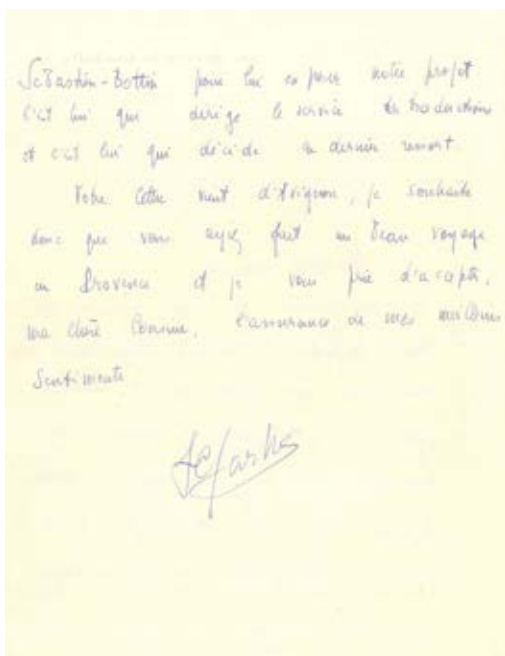 Sebastien-Bottin pour lui exposer notre projet
c'est lui qui dirige le service des traductions
et c'est lui qui décide en dernier ressort.
Votre lettre vient d'Avignon, je souhaite
donc que vous ayez fait un beau voyage
en Provence et je vous prie d'accepter,
ma chère Consine, l'assurance de mes meilleurs
sentiments